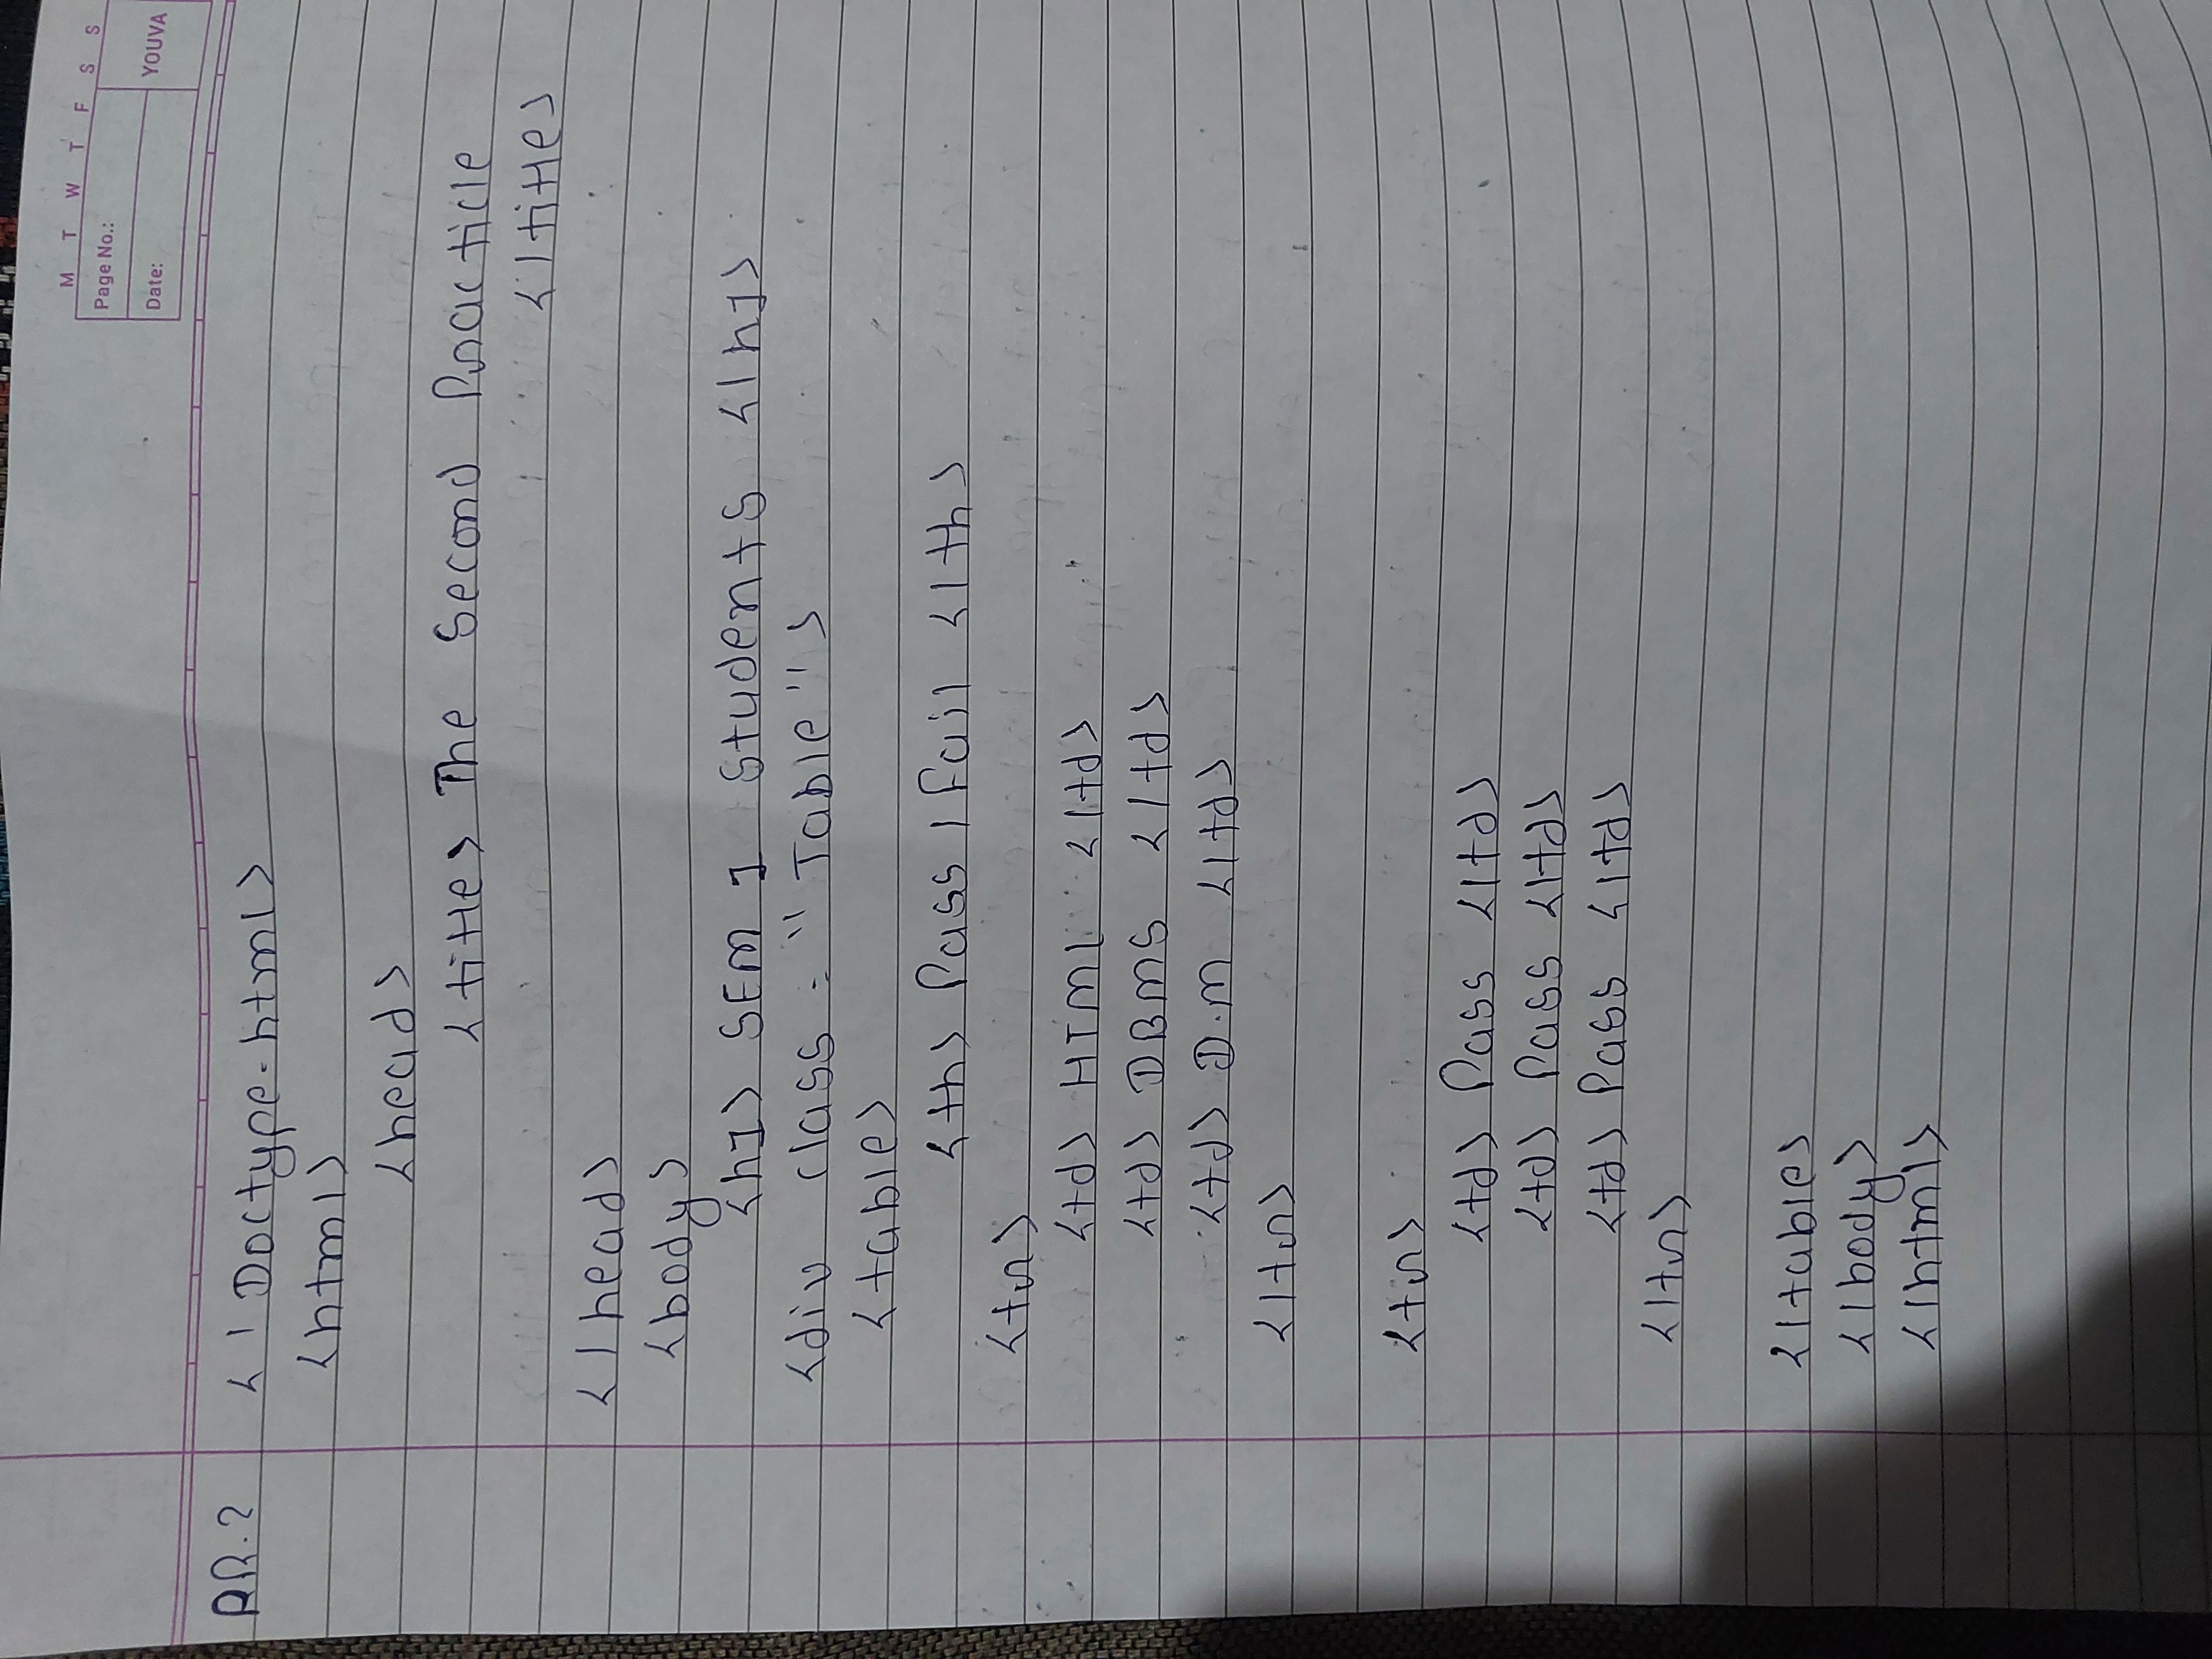 M T W T F S S
Page No.:
Date:
YOUVA
PR.2
<! Doctype.html>
<html>
<head>
<title> The Second Practicle
</title>
</head>
<body>
<h1> SEM 1 Students </h1>
<div class = "Table">
<table>
<th> Pass / Fail </th>
<tr>
<td> HTML </td>
<td> DBMS </td>
<td> D.M </td>
</tr>
<tr>
<td> Pass </td>
<td> Pass </td>
<td> Pass </td>
</tr>
</table>
</body>
</html>